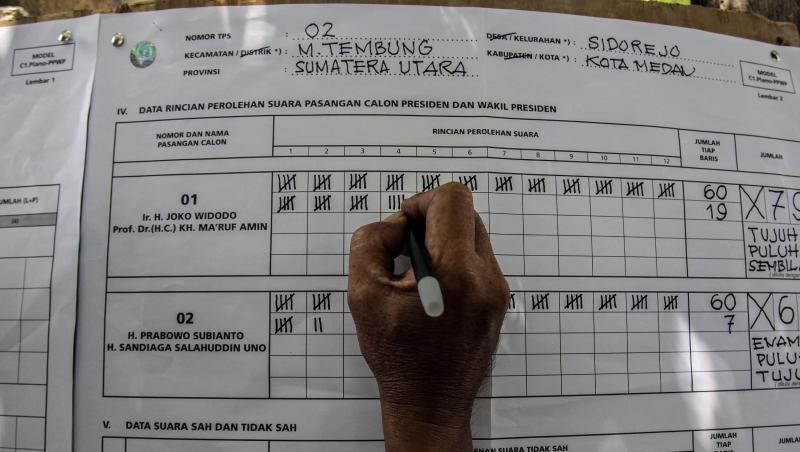 MODEL
C1.Plano-PPWP
Lembar 1
NOMOR TPS : 02
KECAMATAN / DISTRIK *) : M.TEMBUNG
PROVINSI : SUMATERA UTARA
DESA / KELURAHAN *) : SIDOREJO
KABUPATEN / KOTA *) : KOTA MEDAN
MODEL
C1.Plano-PPWP
Lembar 2
IV. DATA RINCIAN PEROLEHAN SUARA PASANGAN CALON PRESIDEN DAN WAKIL PRESIDEN
NOMOR DAN NAMA
PASANGAN CALON
RINCIAN PEROLEHAN SUARA
1 2 3 4 5 6 7 8 9 10 11 12
JUMLAH
TIAP
BARIS
JUMLAH
(L+P)
(4)
01
Ir. H. JOKO WIDODO
Prof. Dr.(H.C.) KH. MA'RUF AMIN
60
19
X79
TUJUH
PULUH
02
H. PRABOWO SUBIANTO
H. SANDIAGA SALAHUDDIN UNO
60
7
X6
ENAM
V. DATA SUARA SAH DAN TIDAK SAH
SUARA TIDAK SAH
JUMLAH
TIAP
BARIS